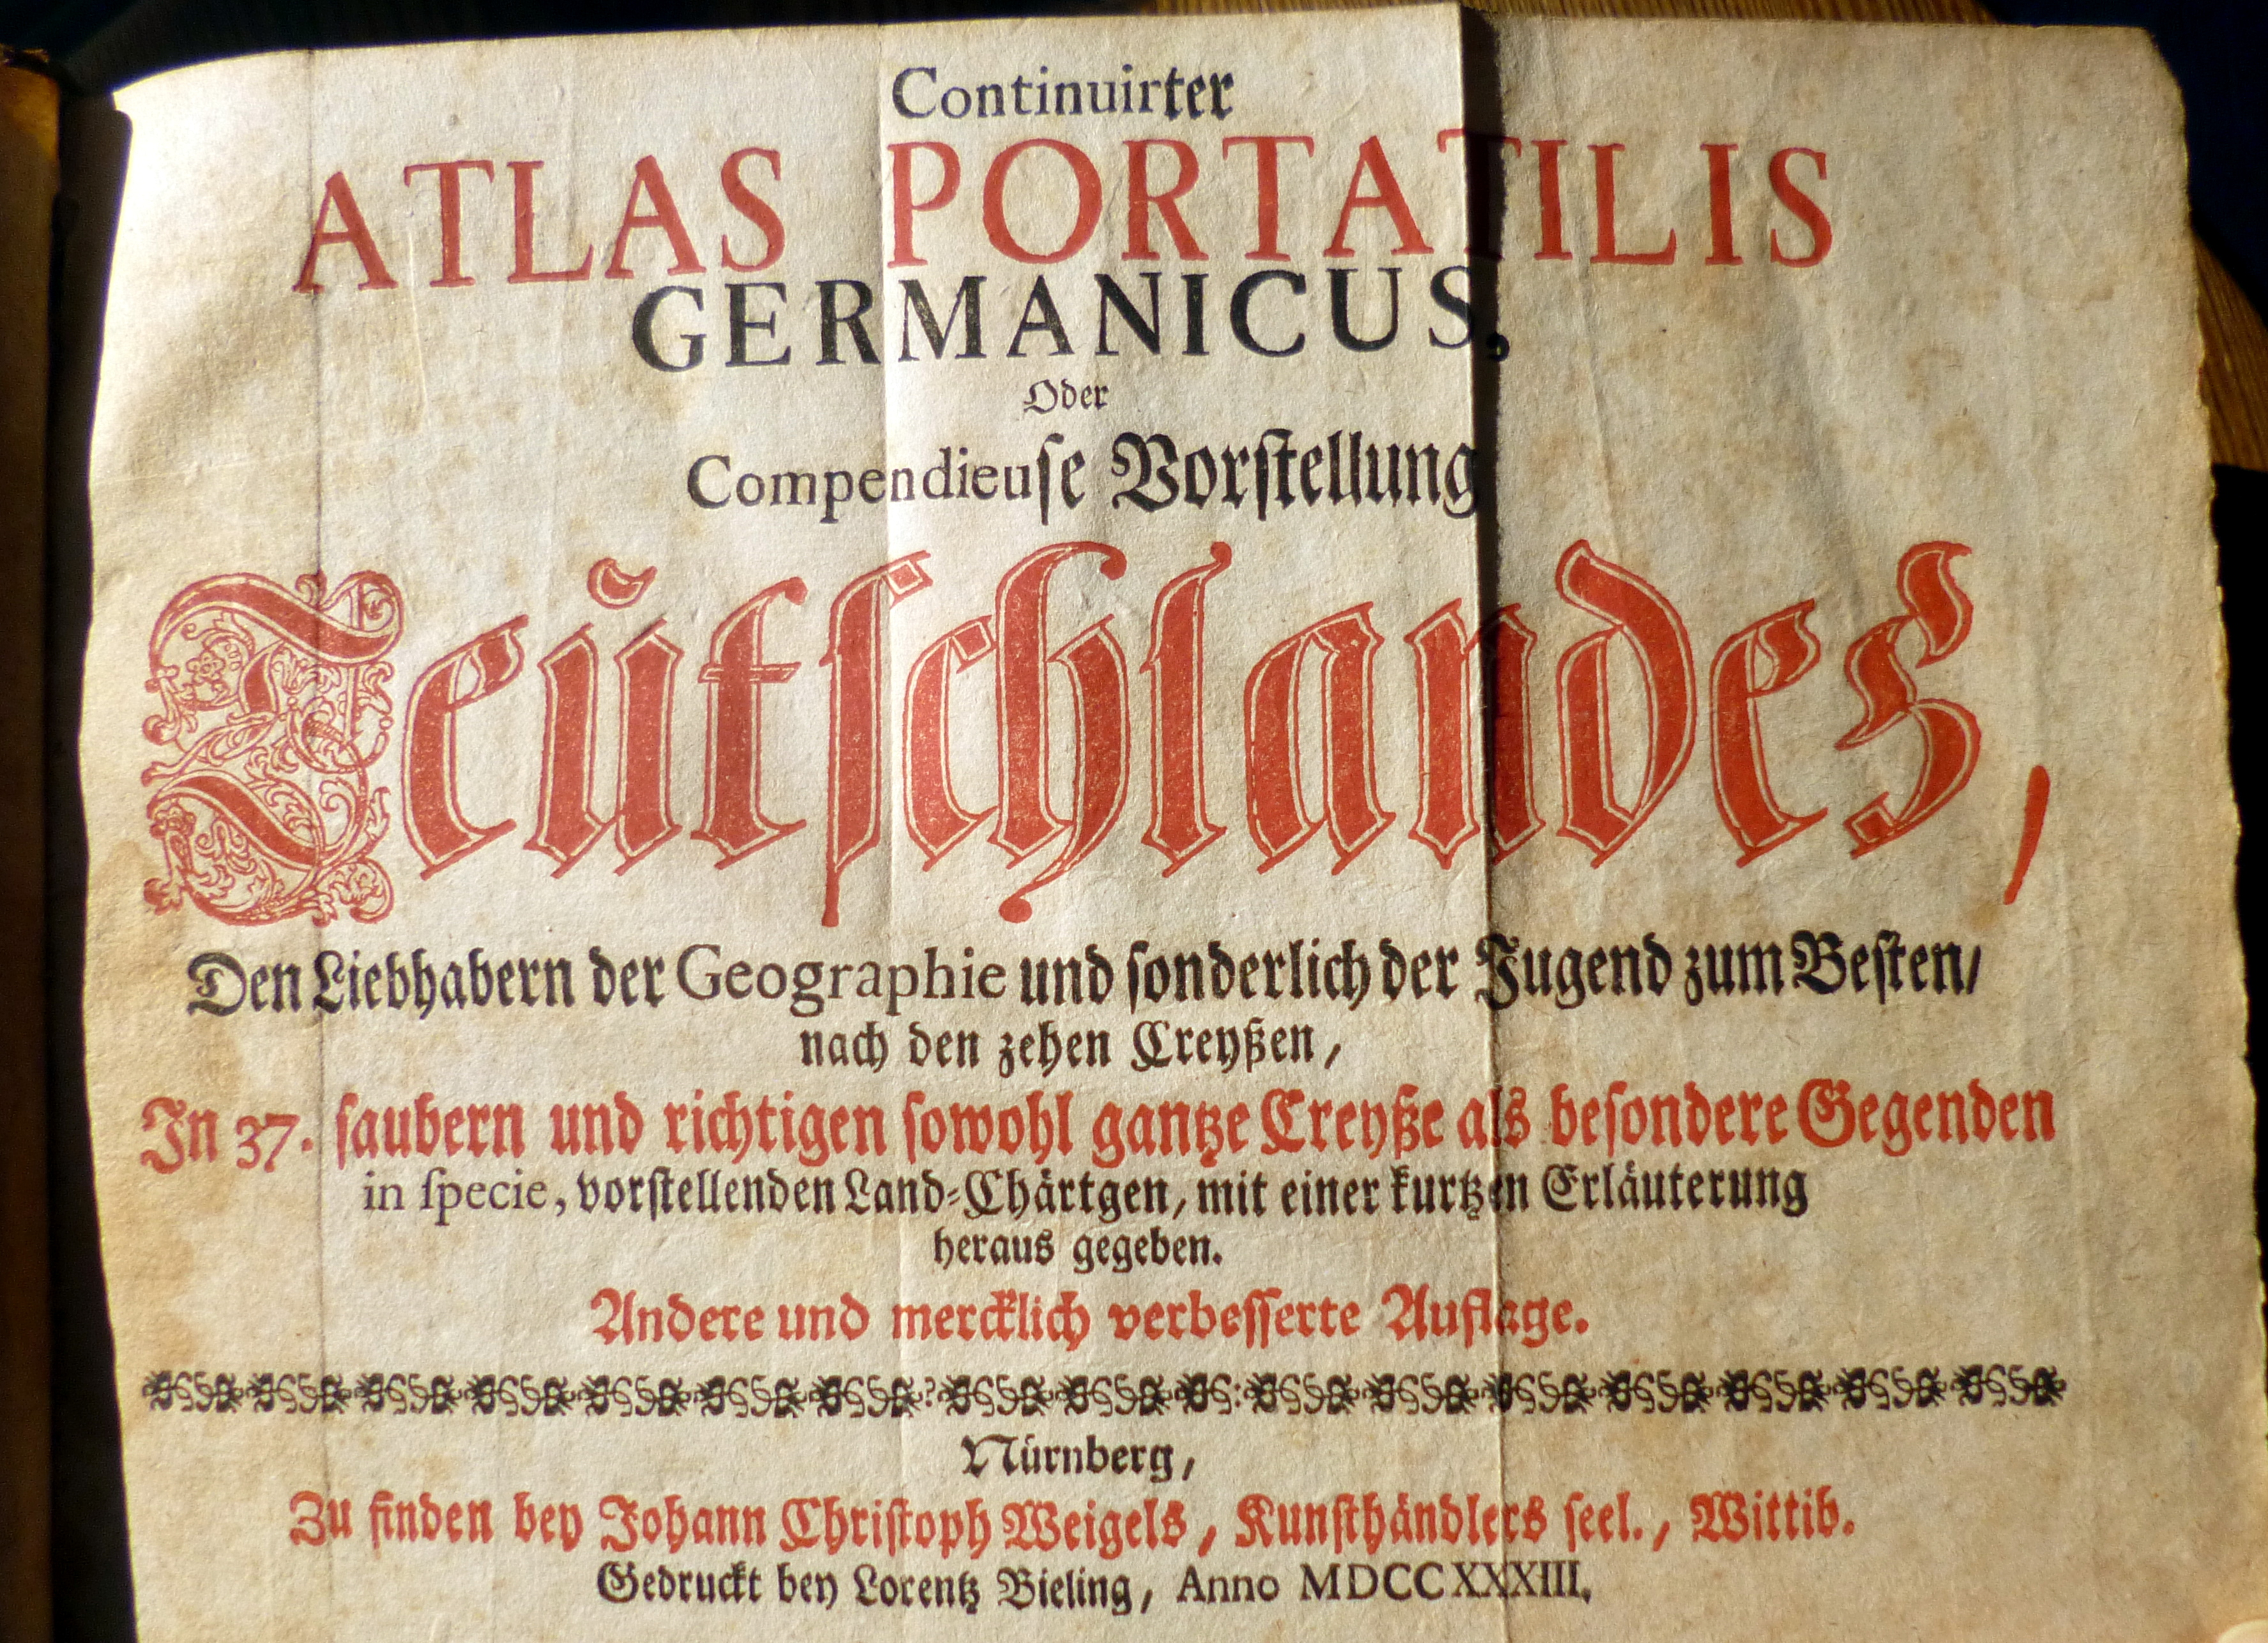 Continuirter
ATLAS PORTATILIS
GERMANICUS,
Oder
Compendieuſe Vorſtellung
Teŭtſchlandes,
Den Liebhabern der Geographie und ſonderlich der Jugend zum Beſten/
nach den zehen Creyßen,
In 37. ſaubern und richtigen ſowohl gantze Creyße als beſondere Gegenden
in ſpecie, vorſtellenden Land-Chärtgen, mit einer kurtzen Erläuterung
heraus gegeben.
Andere und mercklich verbeſſerte Auflage.
Nürnberg,
Zu finden bey Johann Chriſtoph Weigels, Kunſthändlers ſeel., Wittib.
Gedruckt bey Lorentz Bieling, Anno MDCCXXXIII.